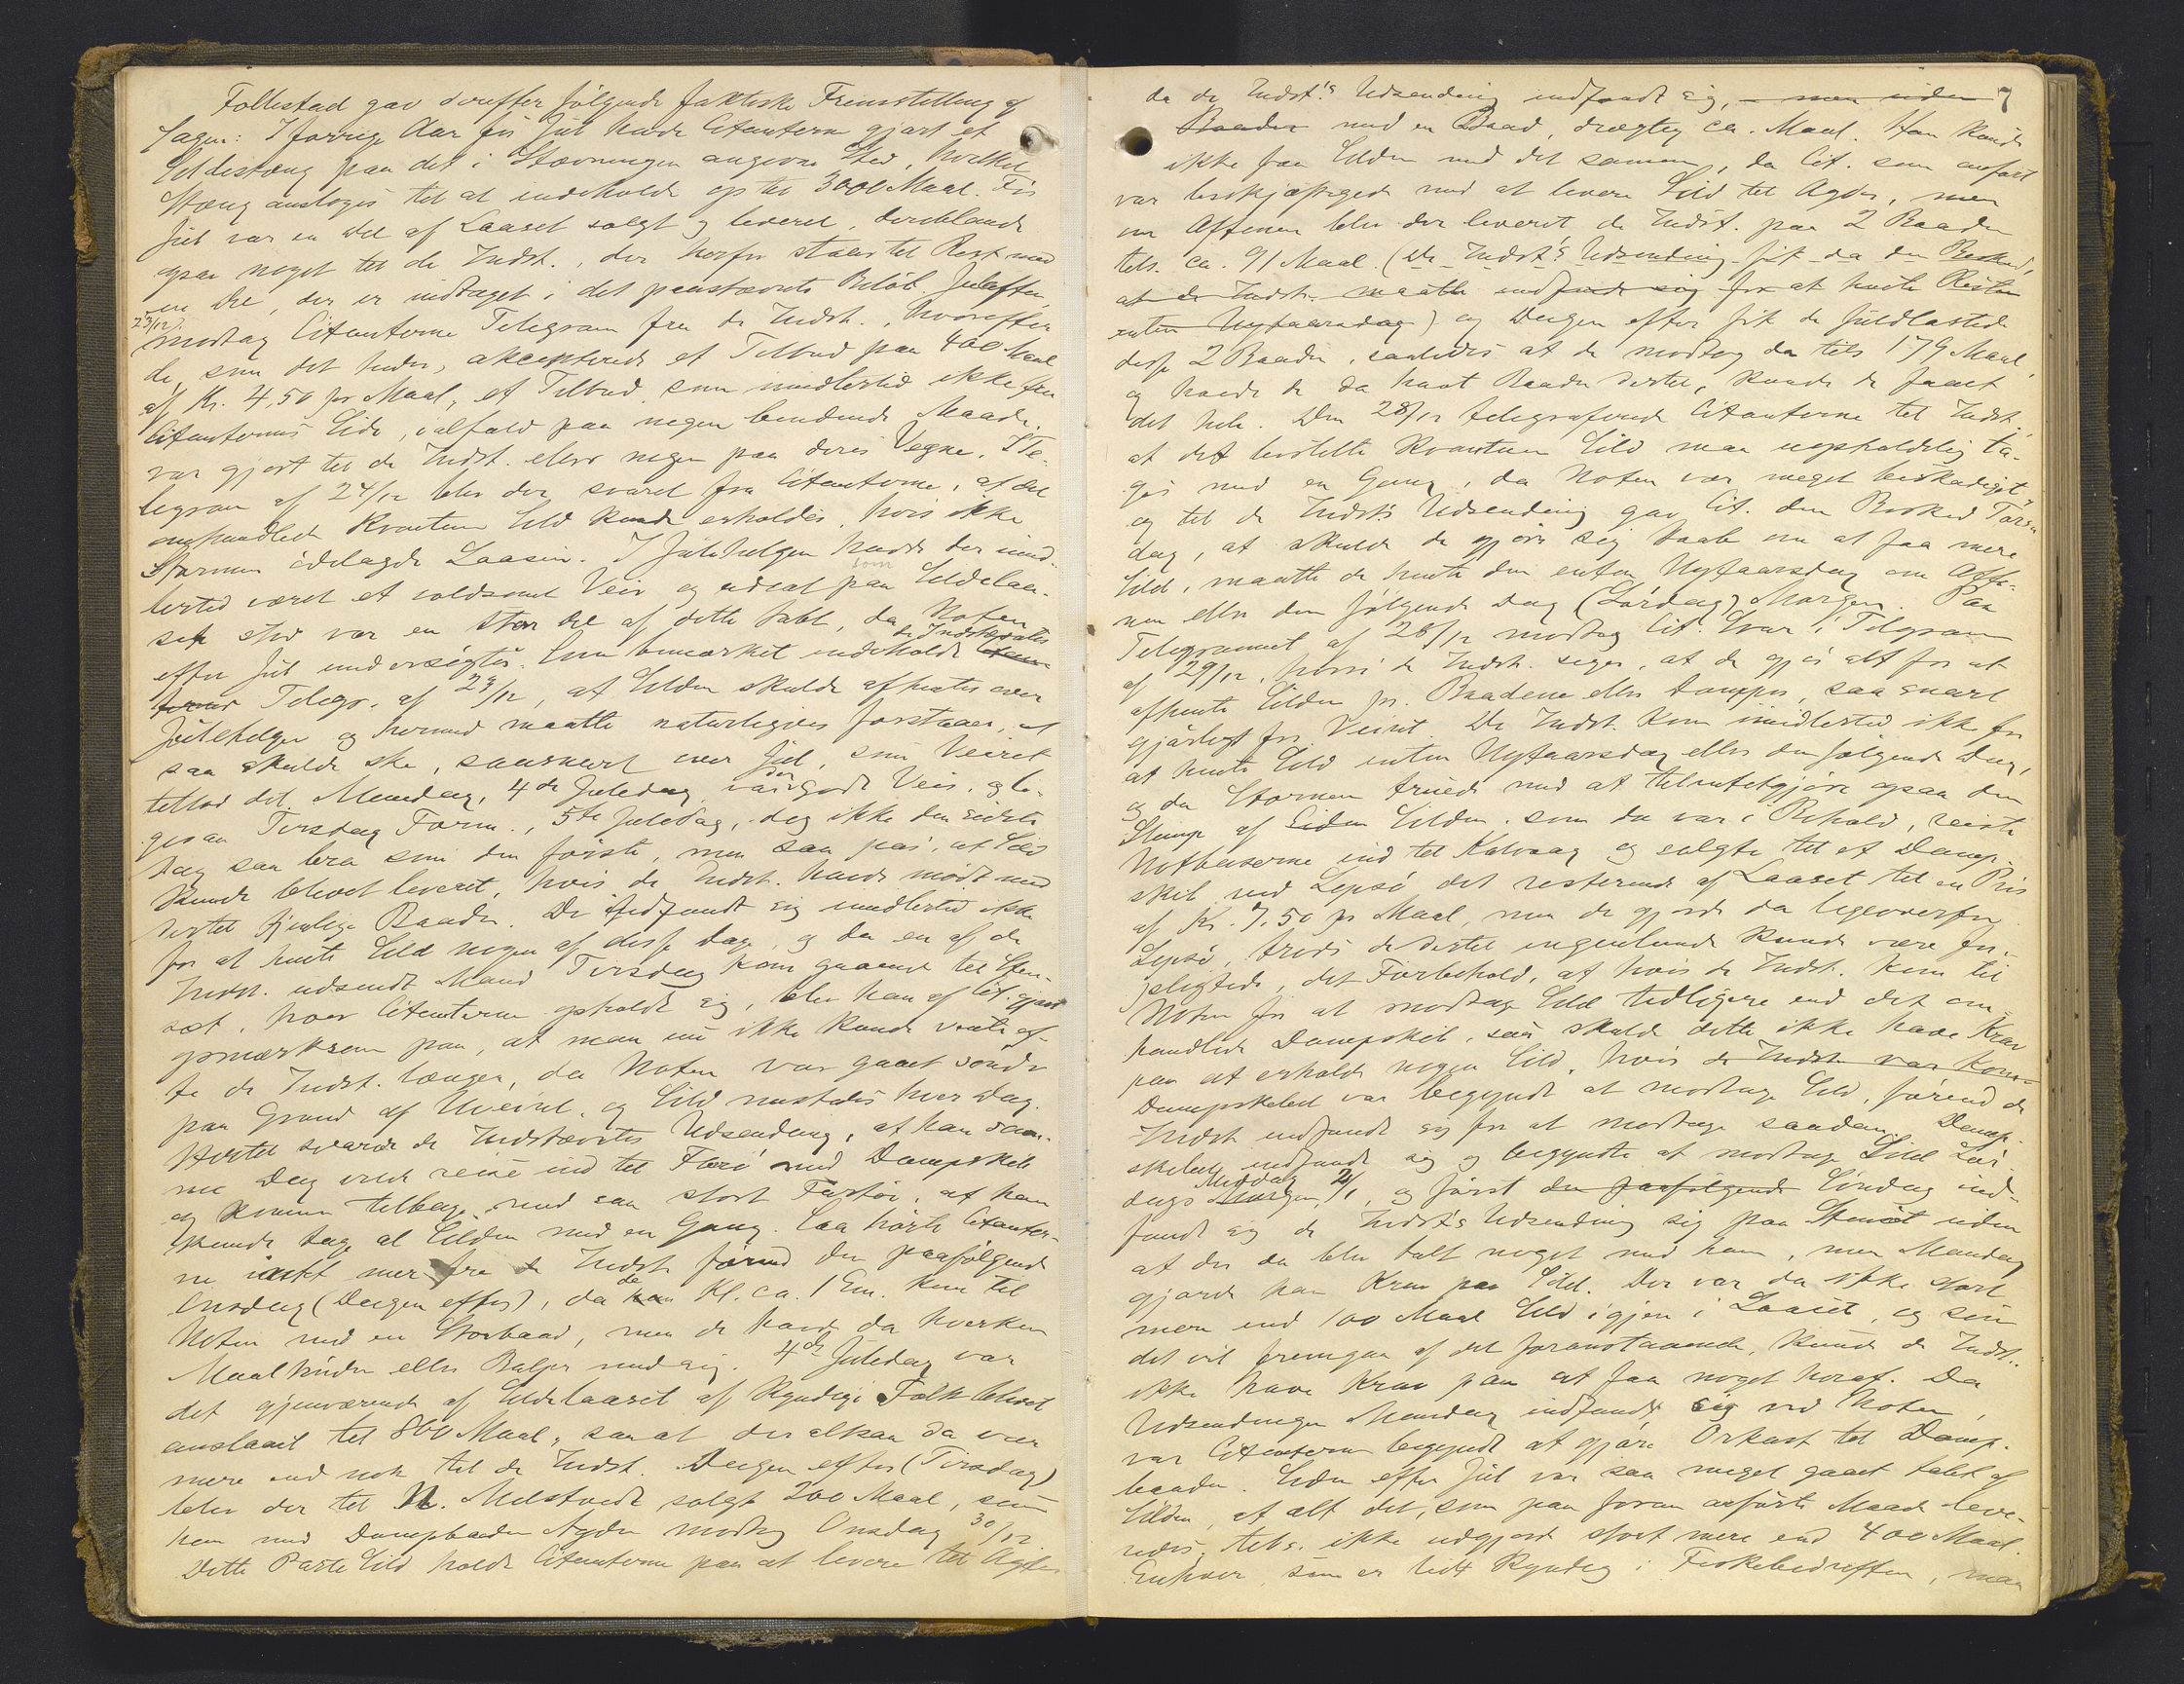 Follestad gav derefter følgende faktiske Fremstilling af
Sagen: I forrige Aar før Jul havde Citanterne gjort et
Sildestæng paa det i Stævningen angivne Sted, hvilket
Stæng ansloges til at indeholde op til 3000 Maal. Før
Jul var en Del af Laaset solgt og leveret, deriblandt
ogsaa noget til de Indst., der herfor staar til Rest med
en Del, der er indtaget i det paastævnte Beløb. Juleaften
23/12 modtog Citanterne Telegram fra de Indst., hvorefter
de, som det heder, akcepterede et Tilbud paa 400 Maal
af Kr. 4,50 pr Maal, et Tilbud som imidlertid ikke fra
Citanternes Side, ialfald paa nogen bindende Maade,
var gjort til de Indst. eller nogen paa deres Vegne. I Te-
legram af 24/12 blev der svaret fra Citanterne, at det
omhandlede Kvantum Sild kunde erholdes, hvis ikke
Stormen ødelagde Laasen. I Julehelgen havde der imid-
lertid været et voldsomt Veir og udsat som paa Sildelaa-
set stod var en stor Del af dette tabt, da Noten
efter Jul undersøgtes. Som bemærket indeholdt de Indstævntes
Telegr. af 23/12, at Silden skulde afhentes over
Julehelgen og hermed maatte naturligvis forstaaes, at
saa skulde ske, saasnart over Jul, som Veiret
tillod det. Mandag, 4de Juledag var der godt Veir, og li-
gesaa Tirsdag Form., 5te Juledag, dog ikke den sidste
Dag saa bra som den første, men saa pas, at Sild
kunde blevet leveret, hvis de Indst. havde mødt med
dertil tjenlige Baade. De indfandt sig imidlertid ikke
for at hente Sild nogen af disse Dage, og da en af de
Indst. udsendt Mand Tirsdag kom gaaende til Sten-
søt, hvor Citanterne opholdt sig, blev han af Cit. gjort
opmærksom paa, at man nu ikke kunde vente ef-
te de Indst. længer, da Noten var gaaet sønder
paa Grund af Uveiret, og Sild mistedes hver Dag.
Hertil svarede de Indstævntes Udsending, at han sam-
me Dag vilde reise ind til Florø med Dampskib
og komme tilbage med saa stort Fartøi, at han
kunde tage al Silden med en Gang. Saa hørte Citanter-
ne intet mer fra de Indst. førend den paafølgende
Onsdag (Dagen efter), da de Kl. ca. 1 Em. kom til
Noten med en Storbaad, men de havde da hverken
Maaltønder eller Balger med sig. 4de Juledag var
det gjenværende af Sildelaaset af kyndige Folk blevet
anslaaet til 800 Maal, saa at der altsaa da var
mere end nok til de Indst. Dagen efter (Tirsdag)
blev der til N. Melstvedt solgt 200 Maal, som
han med Dampbaaden Agder modtog Onsdag 30/12
Dette Parti Sild holdt Citanterne paa at levere til Agder
7
da de Indst.s Udsending indfandt sig, men uden
Baade med en Baad, drægtig ca. Maal. Han kunde
ikke faa Silden med det samme, da Cit. som anført
var beskjæftigede med at levere Sild til Agder, men
om Aftenen blev der leveret de Indst. paa 2 Baade
tils. ca. 91 Maal. (De Indst.s Udsending fik da den Besked,
at de Indst. maatte indfinde sig for at hente Resten
enten Nytaarsdag) og Dagen efter fik de fuldlastede
disse 2 Baade, saaledes at de modtog da tils 179 Maal,
og havde de da havt Baade dertil, kunde de faaet
det hele. Den 28/12 telegraferede Citanterne til Indst.,
at det bestilte Kvantum Sild maa uopholdelig ta-
ges med en Gang, da Noten var meget beskadiget,
og til de Indst.s Udsending gav Cit. den Besked Tors-
dag, at skulde de gjøre sig Haab om at faa mere
Sild, maatte de hente den enten Nytaarsdag om Afte-
nen eller den følgende Dag (Lørdag) Morgen. Paa
Telegrammet af 28/12 modtog Cit. Svar i Telegram
af 29/12, hvori de Indst. siger, at de gjør alt for at
afhente Silden pr. Baadene eller Damper, saa snart
gjørligt for Veiret. De Indst. kom imidlertid ikke for
at hente Sild enten Nytaarsdag eller den følgende Dag,
og da Stormen truede med at tilintetgjøre ogsaa den
Slump af Siden Silden, som da var i Behold, reiste
Notbaserne ind til Kalvaag og solgte til et Damp-
skib ved Lepsø det resterende af Laaset til en Pris
af Kr. 7,50 pr Maal, men de gjorde da ligeoverfor
Lepsø, trods de dertil ingenlunde kunde være for-
pligtede, det Forbehold, at hvis de Indst. kom til
Noten for at modtage Sild tidligere end det om-
handlede Dampskib, saa skulde dette ikke have Krav
paa at erholde nogen Sild, hvis de Indst. var kom-
Dampskibet var begyndt at modtage Sild, førend de
Indst indfandt sig for at modtage saadan. Damp-
skibet indfandt sig og begyndte at modtage Sild Lør-
dags Middag Morgen, 2/1, og først den paafølgende Søndag ind-
fandt sig de Indst's Udsending sig paa Stensøt uden
at der da blev talt noget med ham, men Mandag
gjorde han Krav paa Sild. Der var da ikke stort
mere end 100 Maal Sild igjen i Laaset, og som
det vil fremgaa af det foranstaaende, kunde de Indst.
ikke have Krav paa at faa noget heraf. Da
Udsendingen Mandag indfandt sig ved Noten,
var Citanterne begyndt at gjøre Orkast til Damp-
baaden. Siden efter Jul var saa meget gaaet tabt af
Silden, at alt det, som paa foran anførte Maade leve-
redes, tils. ikke udgjorde stort mere end 400 Maal.
Enhver, som er lidt kyndig i Fiskebedriften, maa